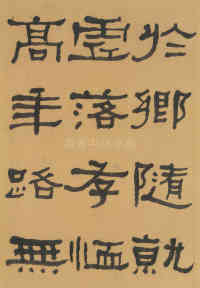 於鄉隨就
虛落存恤
高年路無